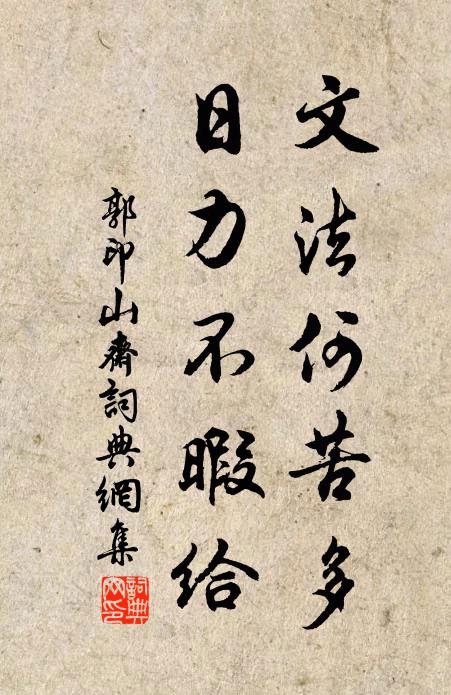 文法何苦多
日力不暇給
郭印山齋詞典網集
詞典
网印